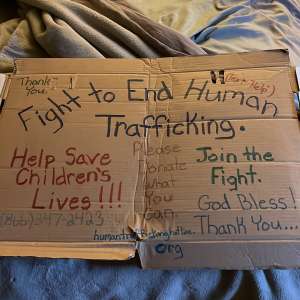 Thank
You.!
Fight to End Human
Trafficking.
Help Save
Children's
Lives!!!
Please
Donate
What
You
Can.
Join the
Fight.
God Bless!
Thank You...
org